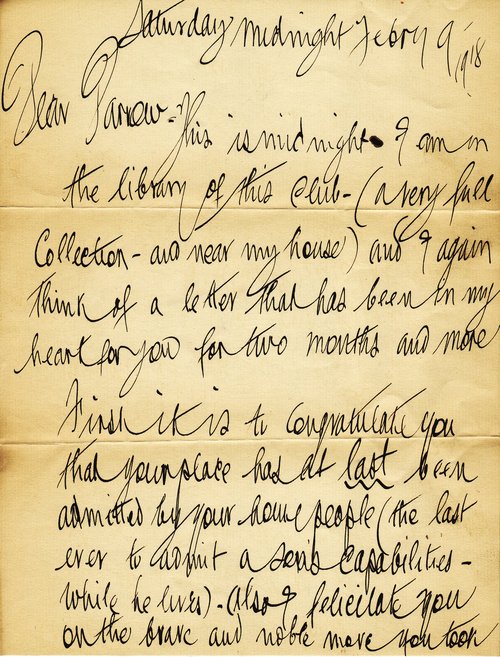 Saturday midnight Febry 9 1918
Dear Parrow - This is midnight. I am in
the library of this Club - (a very full
Collection - and near my house) and I again
think of a letter that has been in my
heart for you for two months and more
First it is to congratulate you
that your place has at last been
admitted by your home people (the last
ever to admit a son's capabilities -
while he lives) - Also I felicitate you
on the brave and noble move you took